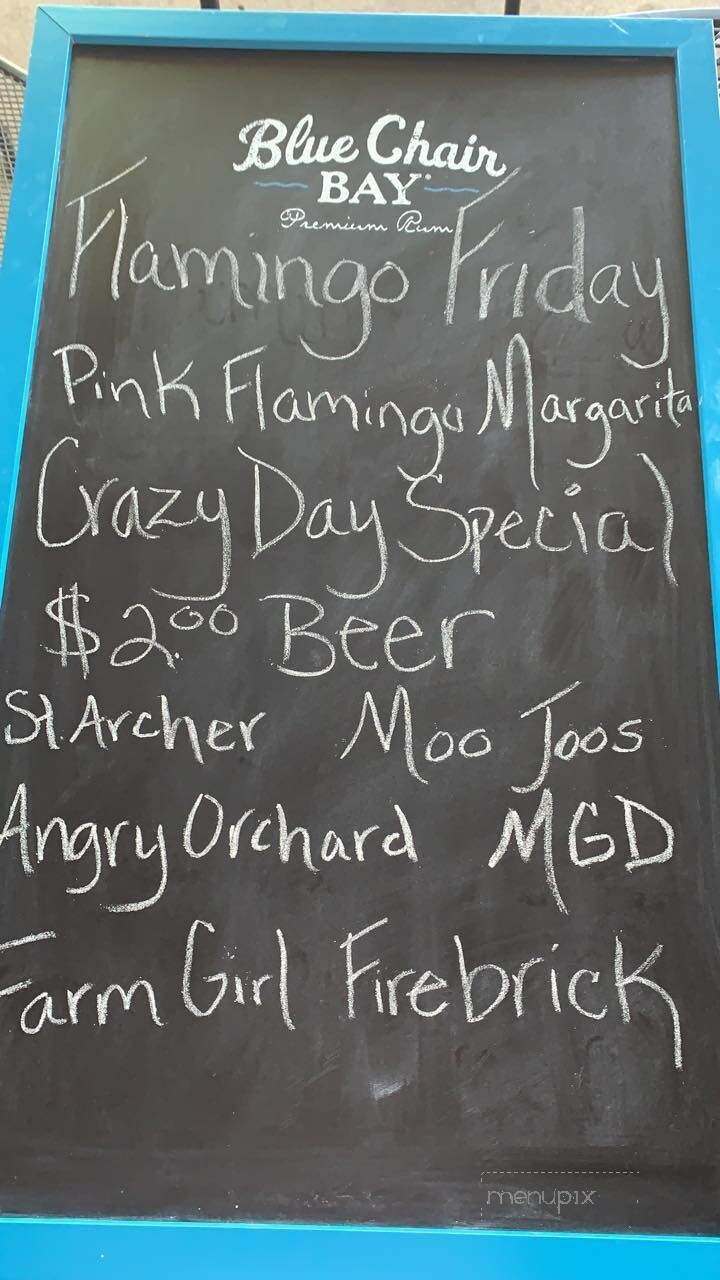 Blue Chair
BAY
Premium Rum
Flamingo Friday
Pink Flamingo Margarita
Crazy Day Special
$2.00 Beer
St. Archer Moo Joos
Angry Orchard MGD
Farm Girl Firebrick
menupix